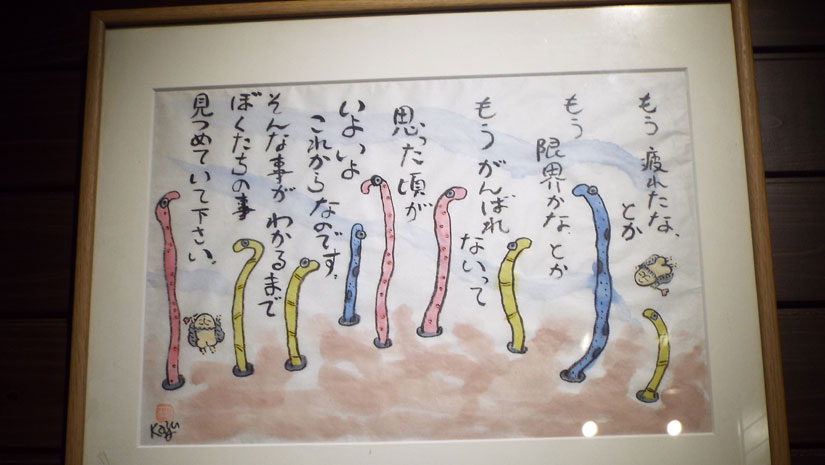 もう 疲れたな、
とか
もう
限界かな、とか
もう がんばれ
ないって
思った頃が
いよいよ
これからなのです。
そんな事が わかるまで
ぼくたちの事
見つめていて下さい。